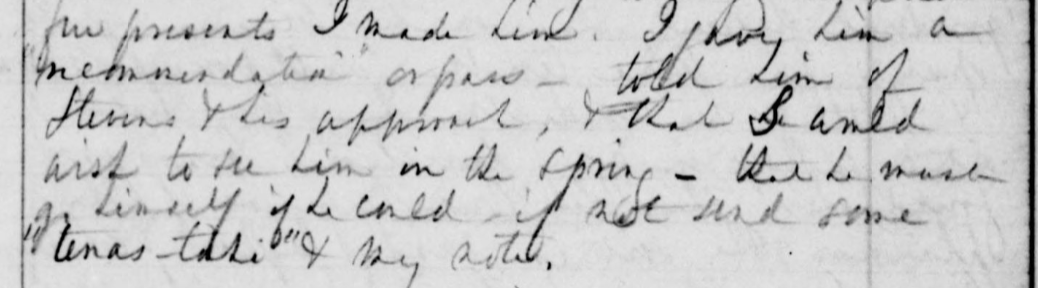 few presents I made him. I gave him a
"recommendation" or pass - told him of
Stevens & his approach, & that S would
wish to see him in the spring - that he must
go himself if he could - if not send some
"tenas-tahi" & my note.